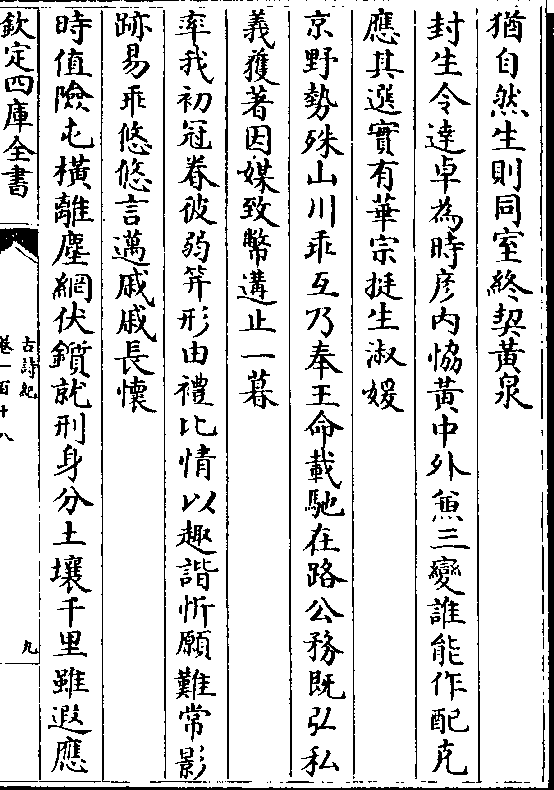 猶自然生則同室終契黃泉
封生令達卓為時彦内恊黃中外兼三變誰能作配克
應其選實有華宗挺生淑媛
京野勢殊山川乖互乃奉王命載馳在路公務既弘私
義獲著因媒致幣遘止一暮
率我初冠眷彼弱笄形由禮比情以趣諧忻願難常影
跡易乖悠悠言邁戚戚長懐
時值險屯橫離塵網伏鑕就刑身分土壤千里雖遐應
欽定四庫全書
古詩紀
卷一百十八
九